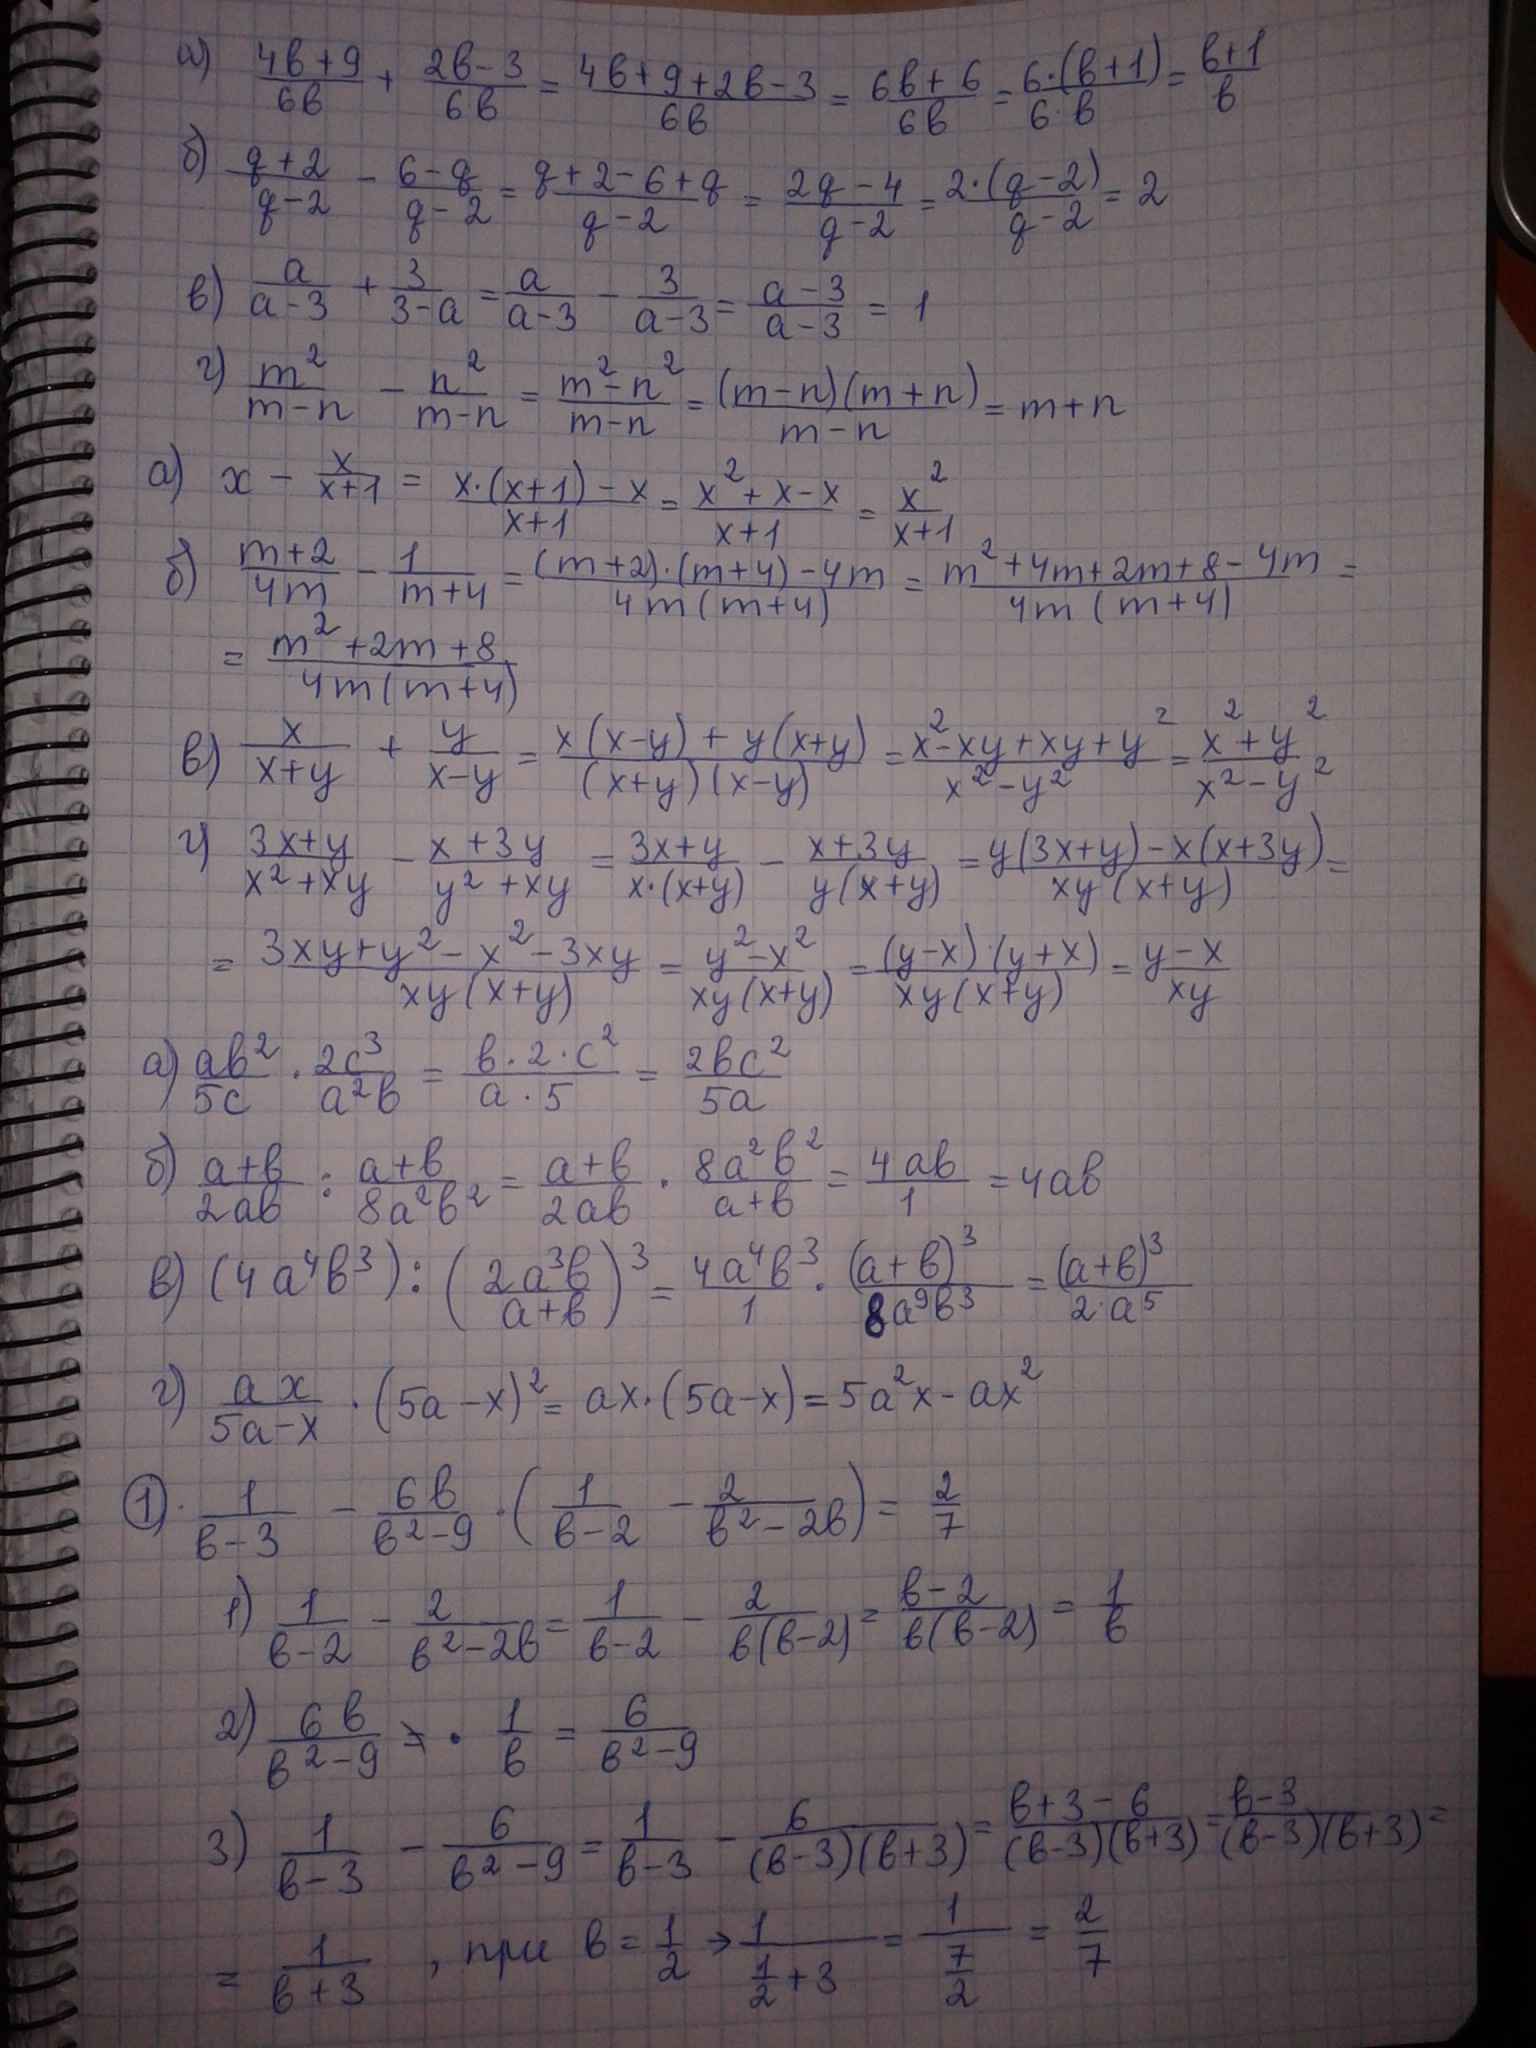 а) (4b+9)/(6b) + (2b-3)/(6b) = (4b+9+2b-3)/(6b) = (6b+6)/(6b) = (6·(b+1))/(6·b) = (b+1)/b
б) (q+2)/(q-2) - (6-q)/(q-2) = (q+2-6+q)/(q-2) = (2q-4)/(q-2) = (2·(q-2))/(q-2) = 2
в) a/(a-3) + 3/(3-a) = a/(a-3) - 3/(a-3) = (a-3)/(a-3) = 1
г) m²/(m-n) - n²/(m-n) = (m²-n²)/(m-n) = ((m-n)(m+n))/(m-n) = m+n
а) x - x/(x+1) = (x·(x+1)-x)/(x+1) = (x²+x-x)/(x+1) = x²/(x+1)
б) (m+2)/(4m) - 1/(m+4) = ((m+2)·(m+4)-4m)/(4m(m+4)) = (m²+4m+2m+8-4m)/(4m(m+4)) =
= (m²+2m+8)/(4m(m+4))
в) x/(x+y) + y/(x-y) = (x(x-y)+y(x+y))/((x+y)(x-y)) = (x²-xy+xy+y²)/(x²-y²) = (x²+y²)/(x²-y²)
г) (3x+y)/(x²+xy) - (x+3y)/(y²+xy) = (3x+y)/(x·(x+y)) - (x+3y)/(y(x+y)) = (y(3x+y)-x(x+3y))/(xy(x+y)) =
= (3xy+y²-x²-3xy)/(xy(x+y)) = (y²-x²)/(xy(x+y)) = ((y-x)·(y+x))/(xy(x+y)) = (y-x)/(xy)
а) (ab²)/(5c) · (2c³)/(a²b) = (b·2·c²)/(a·5) = (2bc²)/(5a)
б) (a+b)/(2ab) : (a+b)/(8a²b²) = (a+b)/(2ab) · (8a²b²)/(a+b) = (4ab)/1 = 4ab
в) (4a⁴b³) : ((2a³b)/(a+b))³ = (4a⁴b³)/1 · (a+b)³/(8a⁹b³) = (a+b)³/(2·a⁵)
г) (ax)/(5a-x) · (5a-x)² = ax·(5a-x) = 5a²x-ax²
① 1/(b-3) - (6b)/(b²-9) · (1/(b-2) - 2/(b²-2b)) = 2/7
1) 1/(b-2) - 2/(b²-2b) = 1/(b-2) - 2/(b(b-2)) = (b-2)/(b(b-2)) = 1/b
2) (6b)/(b²-9) · 1/b = 6/(b²-9)
3) 1/(b-3) - 6/(b²-9) = 1/(b-3) - 6/((b-3)(b+3)) = (b+3-6)/((b-3)(b+3)) = (b-3)/((b-3)(b+3)) =
= 1/(b+3), при b = 1/2 → 1/(1/2+3) = 1/(7/2) = 2/7